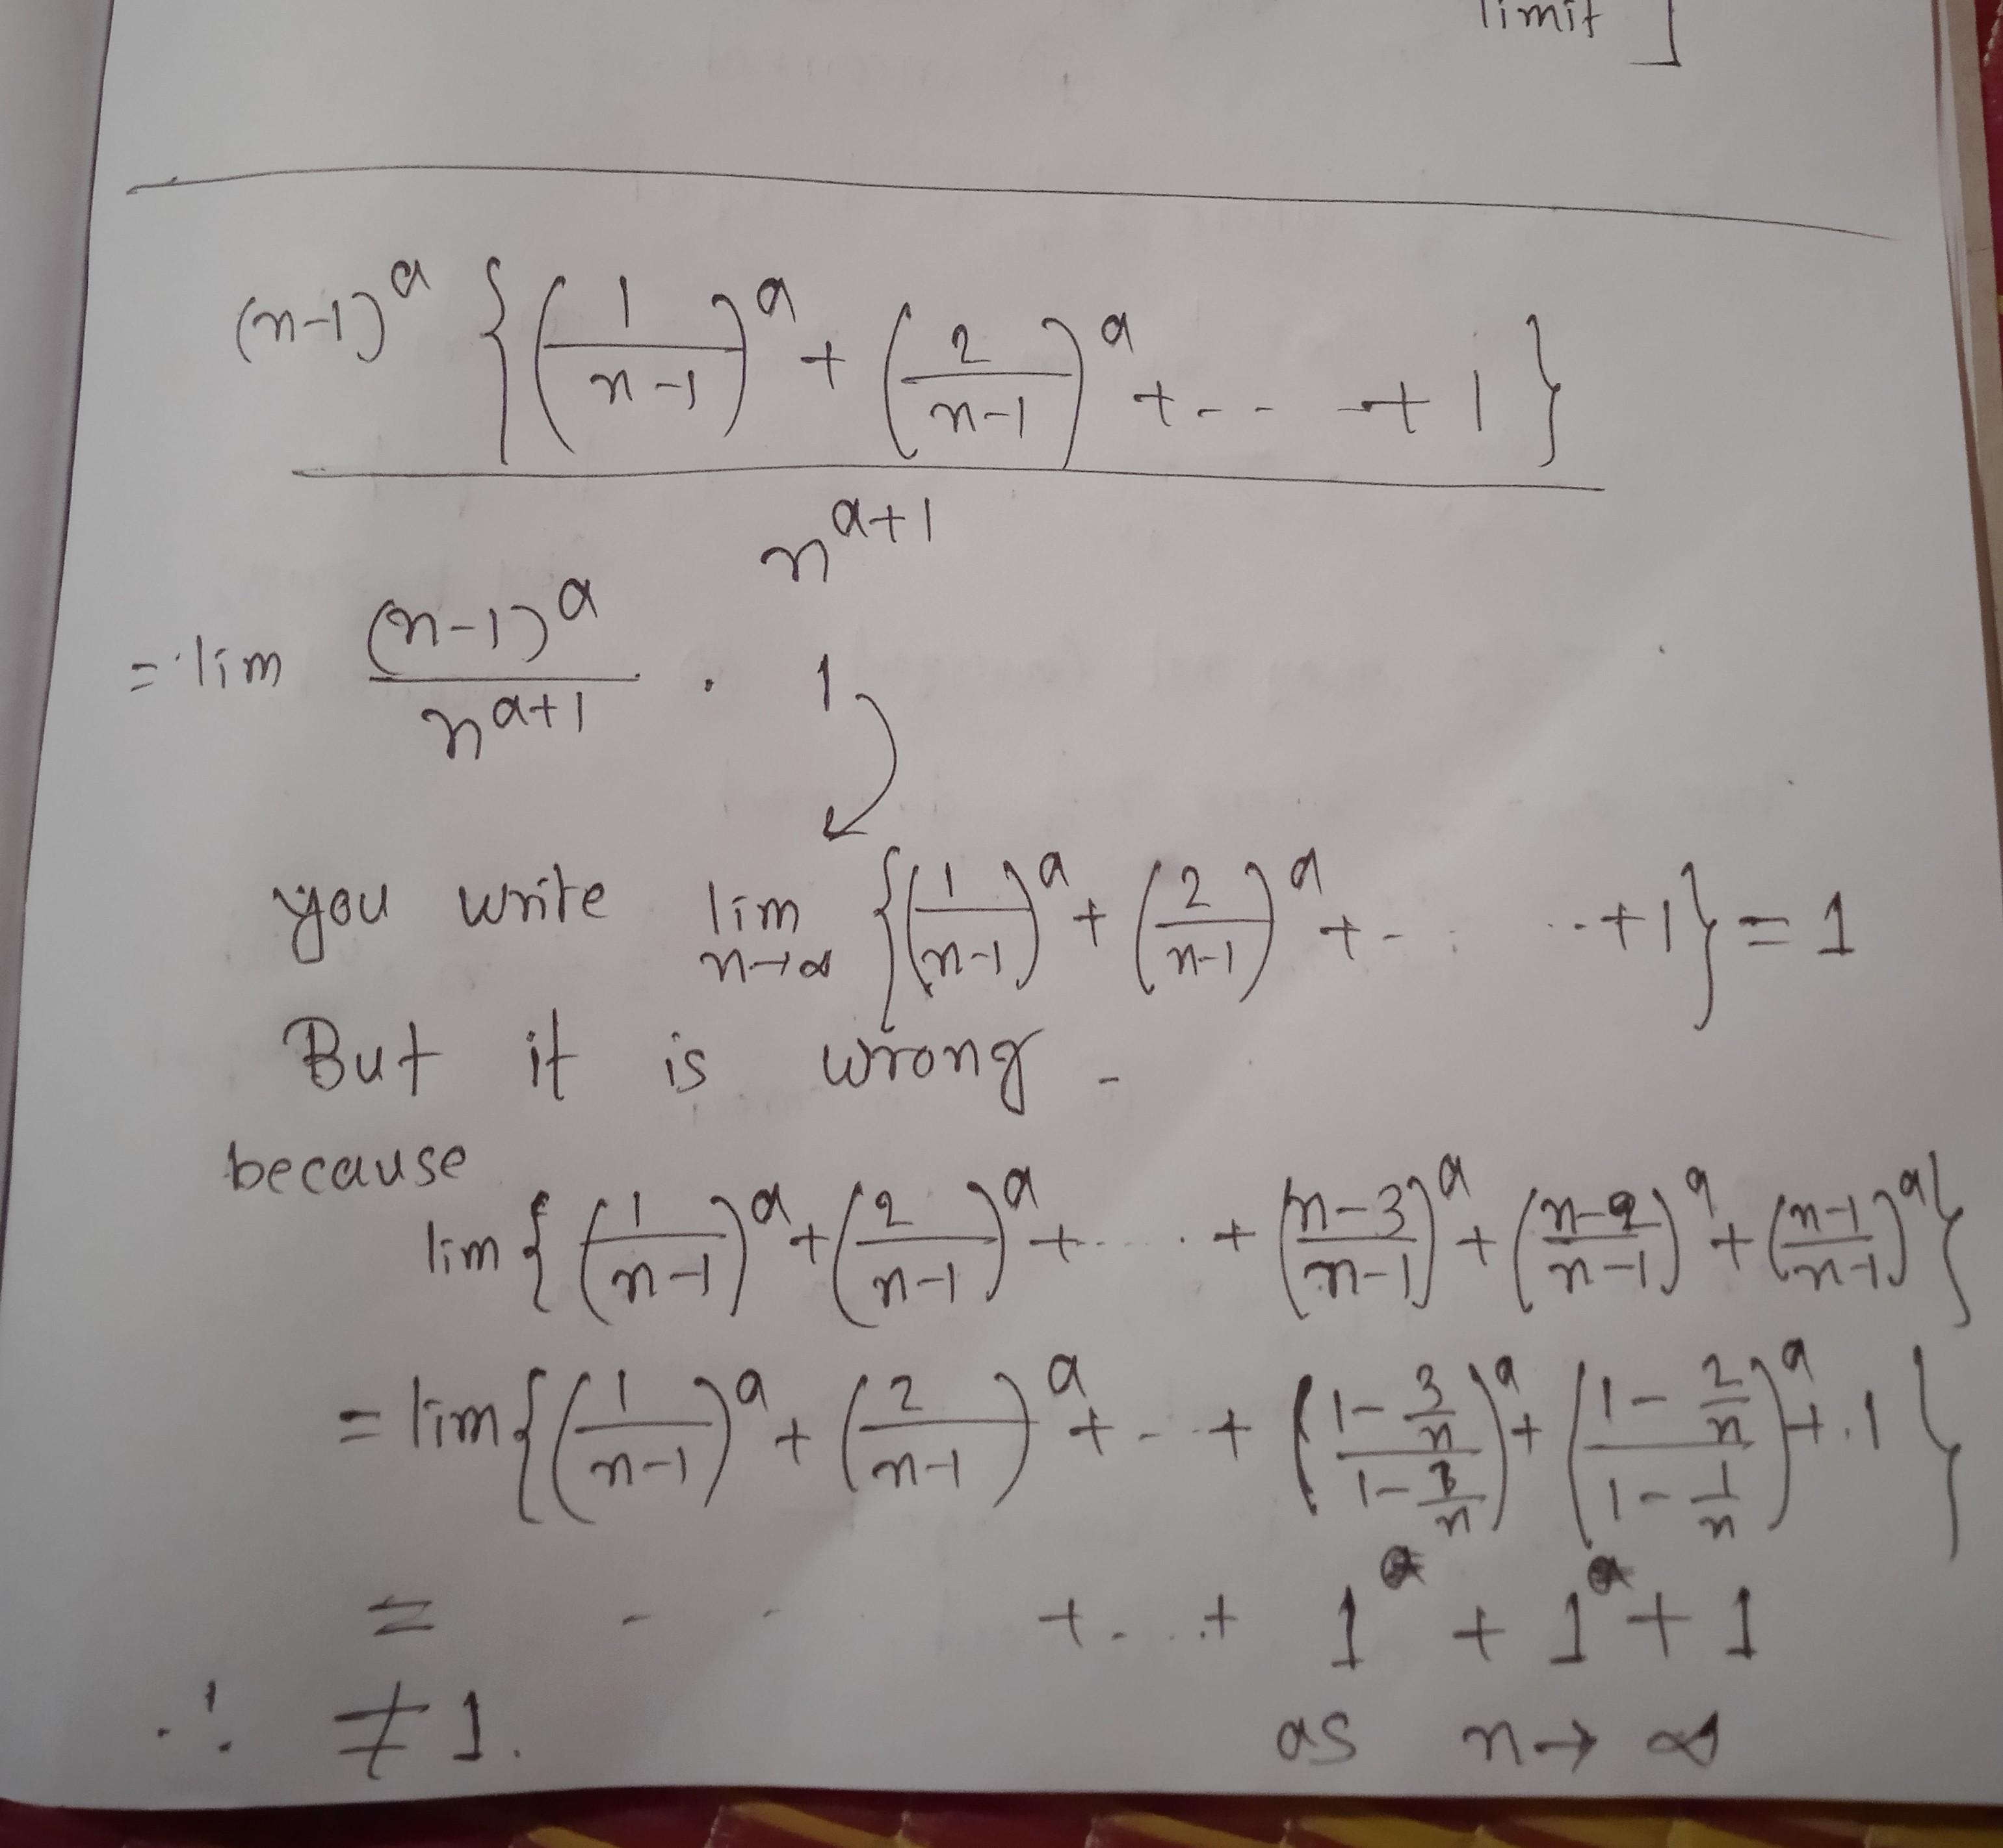 limit ]
(n-1)^a { (1/(n-1))^a + (2/(n-1))^a + -- + 1 }
n^(a+1)
= lim (n-1)^a / n^(a+1) . 1
you write lim n→∞ { (1/(n-1))^a + (2/(n-1))^a + - .. ..+1 } = 1
But it is wrong -
because
lim { (1/(n-1))^a + (2/(n-1))^a + ..... + ((n-3)/(n-1))^a + ((n-2)/(n-1))^a + ((n-1)/(n-1))^a }
= lim { (1/(n-1))^a + (2/(n-1))^a + - .. + ((1-3/n)/(1-3/n))^a + ((1-2/n)/(1-1/n))^a + .1 }
= - - +. ..+ 1^a + 1^a + 1
∴ ≠ 1. as n→∞